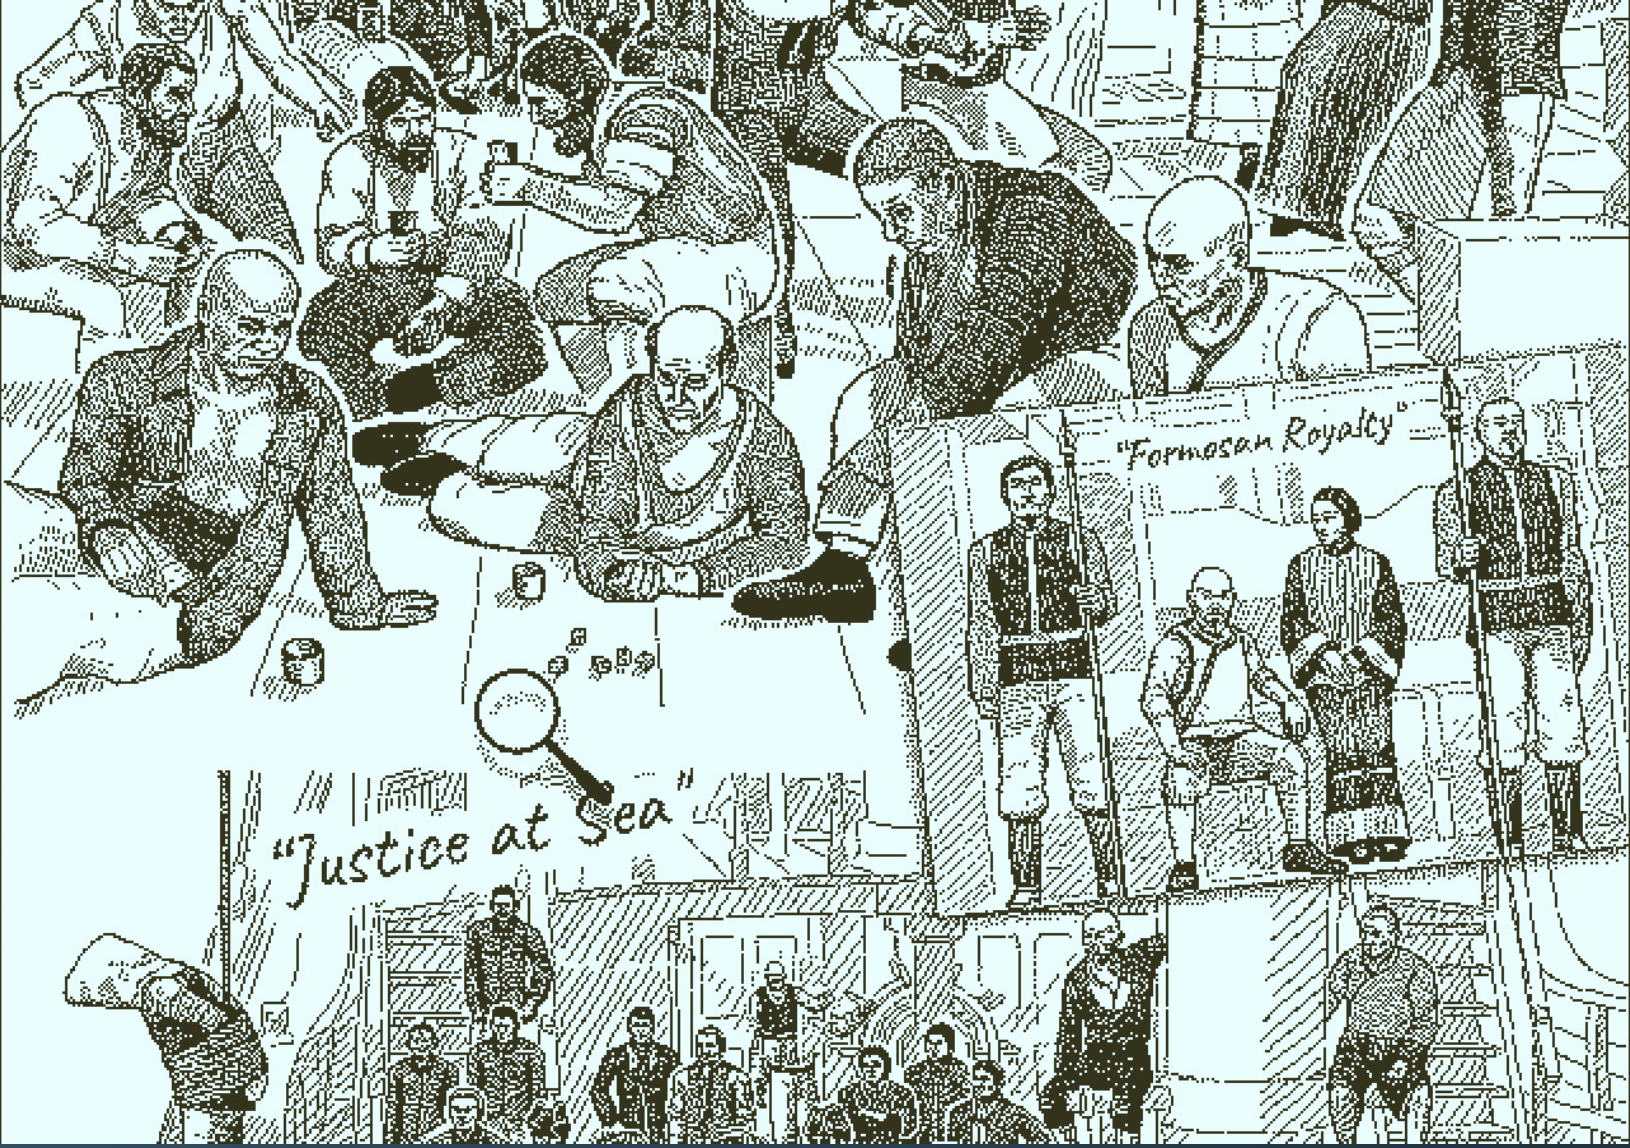 "Formosan Royalty"
"Justice at Sea"